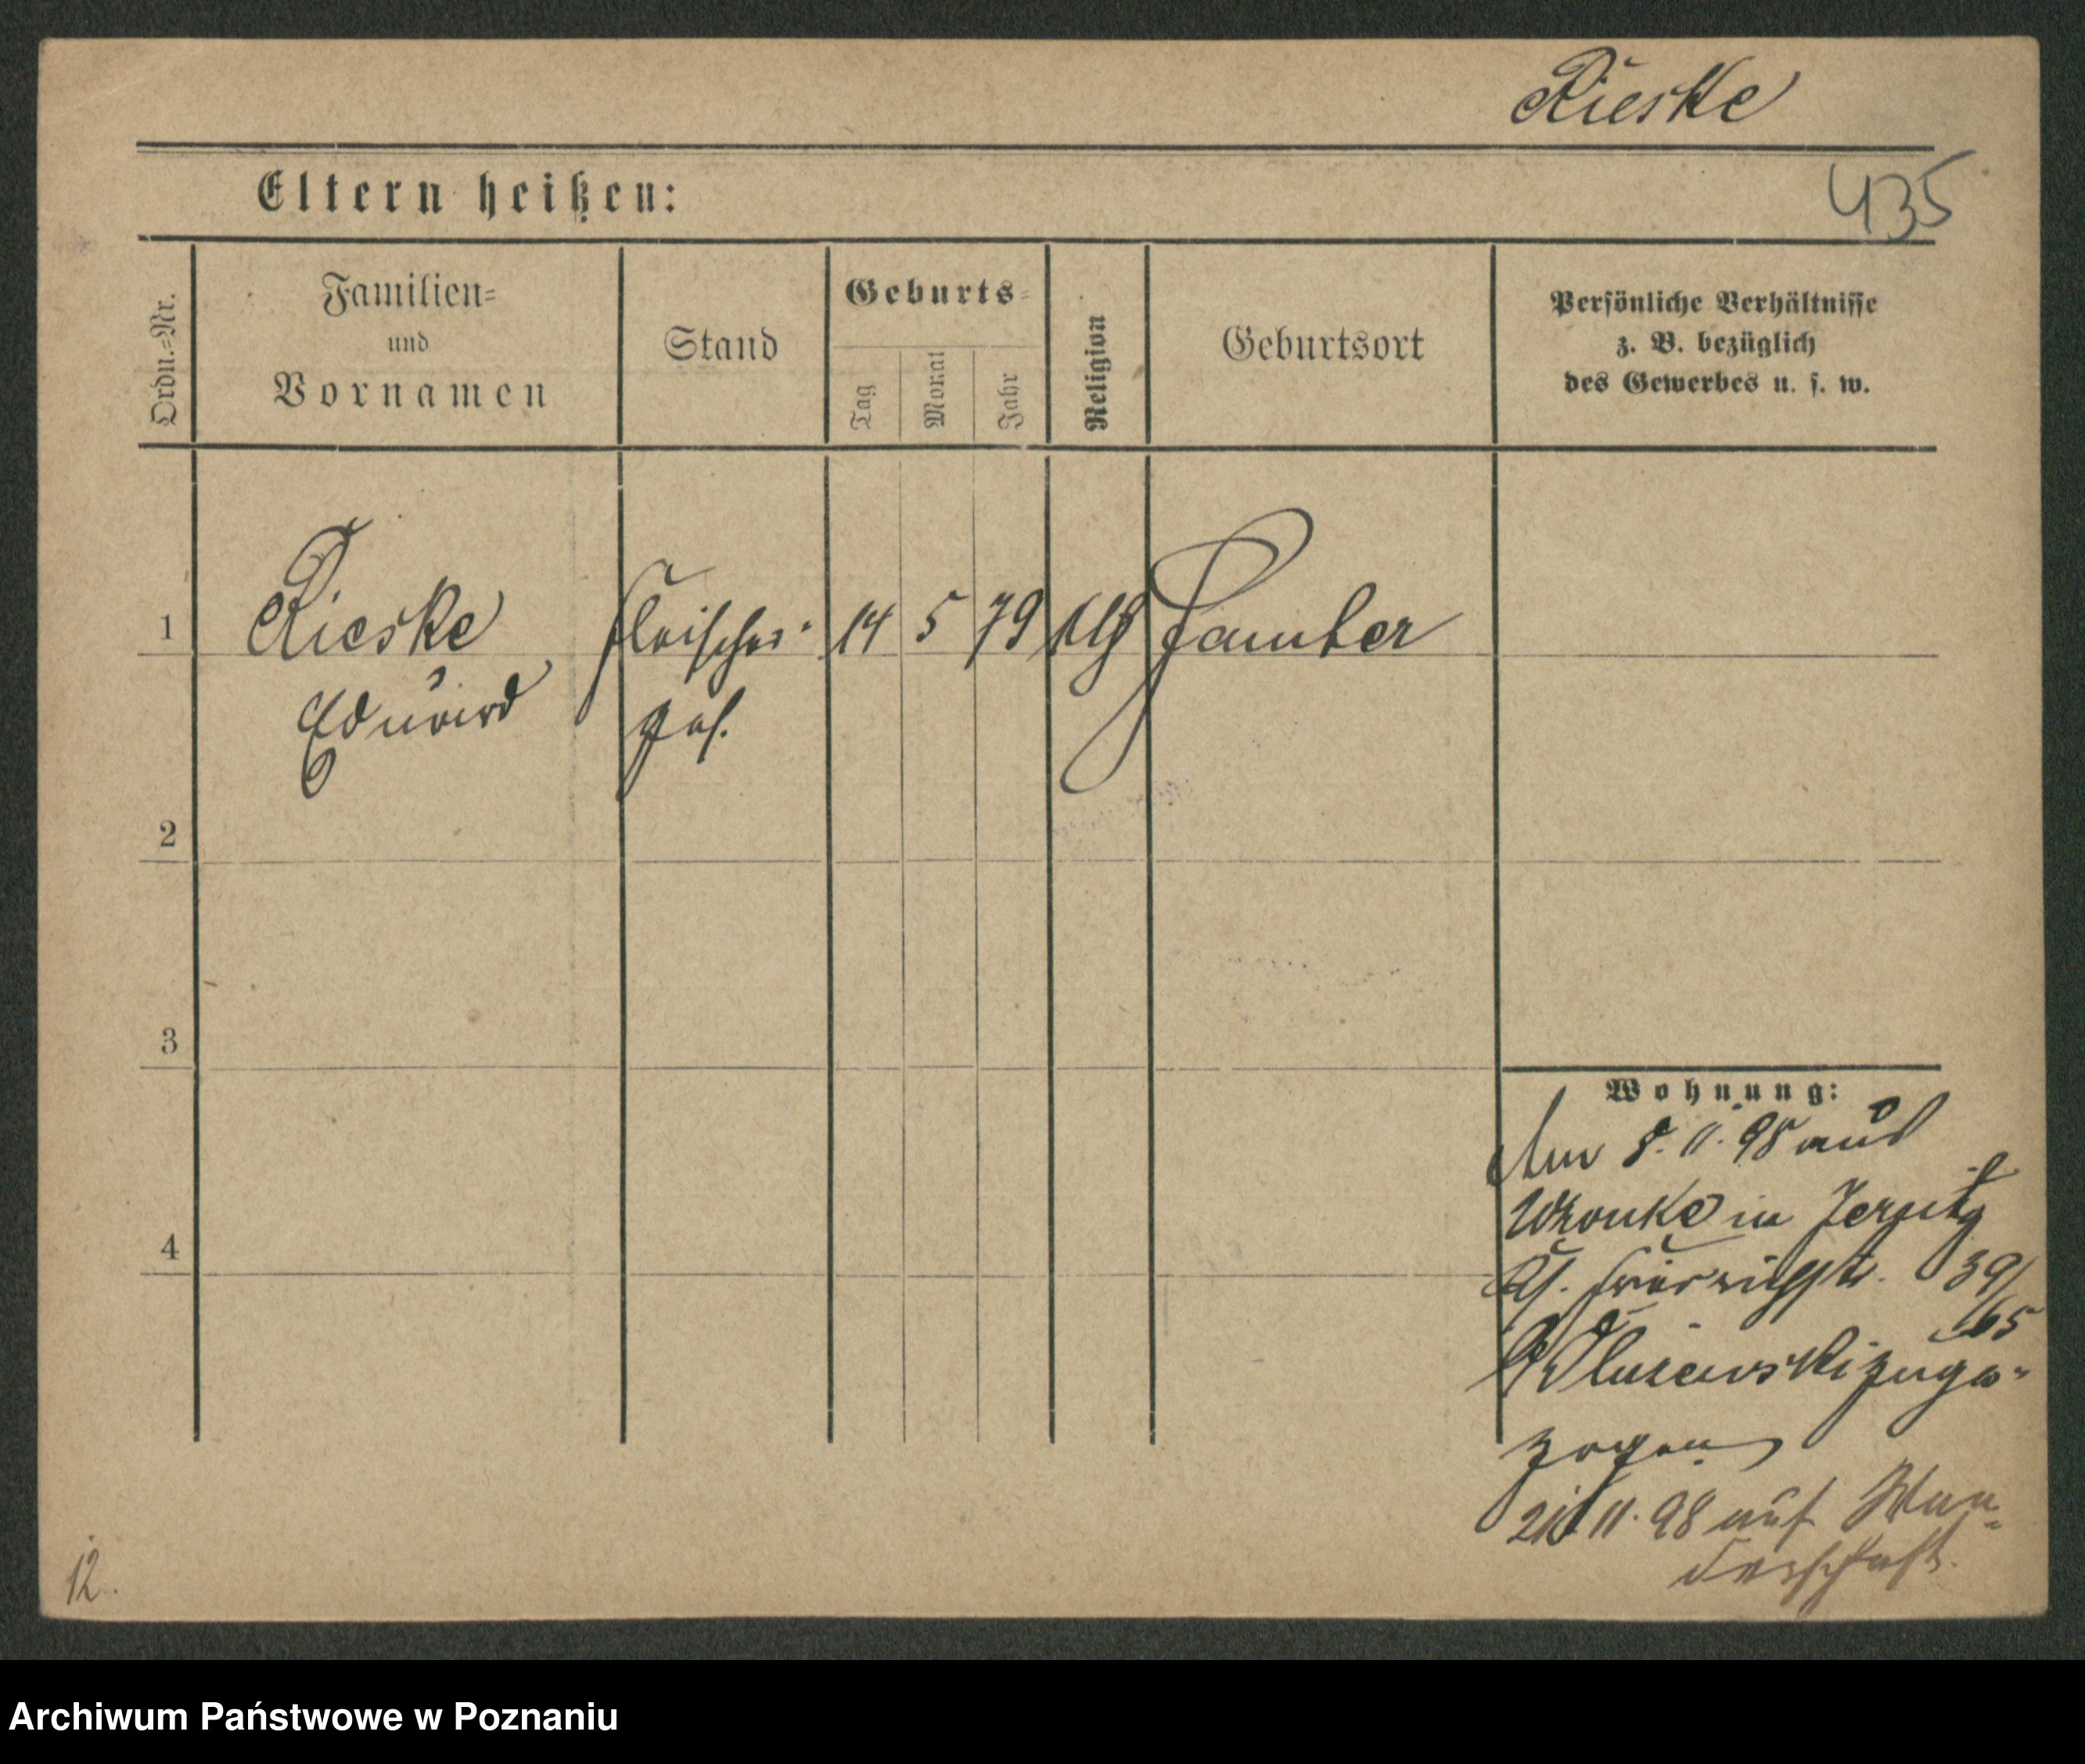 Rieske
435
Eltern heißen:
Ordn.=Nr.
Familien=
und
Vornamen
Stand
Geburts=
Tag
Monat
Jahr
Religion
Geburtsort
Persönliche Verhältnisse
z. B. bezüglich
des Gewerbes u. s. w.
1
Rieske
Eduard
Fleischer
ges.
14
5
79
Samter
2
3
4
Wohnung:
Am 8. 11. 98 aus
Wronke in Jersitz
39/
65
zuge=
zogen
21/11. 98 auf Wan=
derschaft.
12.
Archiwum Państwowe w Poznaniu